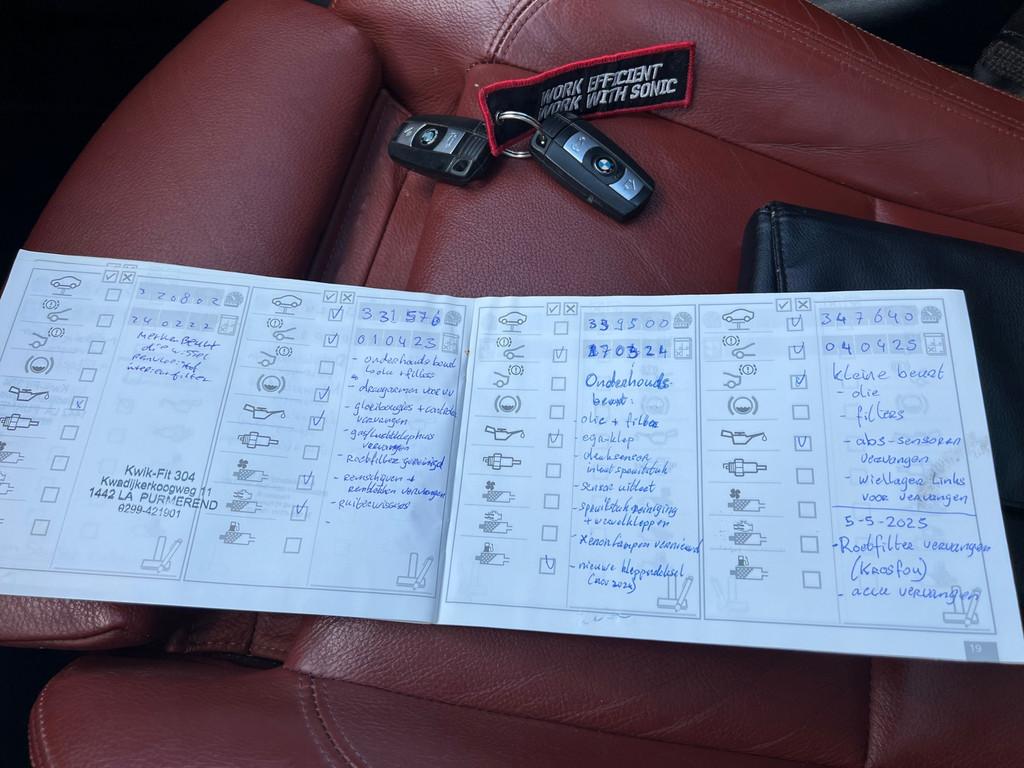 WORK EFFICIENT
WORK WITH SONIC
320802
240222
interieurfilter
Kwik-Fit 304
Kwadijkerkoogweg 11
1442 LA PURMEREND
0299-421901
331576
010423
- onderhoudsbeurt
- draagarmen voor
vervangen
vervangen
- Roetfilter gereinigd
- remschijven +
remblokken vervangen
- ruitenwissers
-
339500
170324
Onderhouds-
beurt:
- olie + filters
- egr-klep
- druksensor
inlaatspruitstuk
- sensor uitlaat
- spruitstukreiniging
+ wervelkleppen
- Xenonlampen vernieuwd
- nieuwe kleppendeksel
(nov 2024)
347640
040425
kleine beurt
- olie
- filters
- abs-sensoren
vervangen
- wiellager links
voor vervangen
5-5-2025
- Roetfilter vervangen
- accu vervangen
19